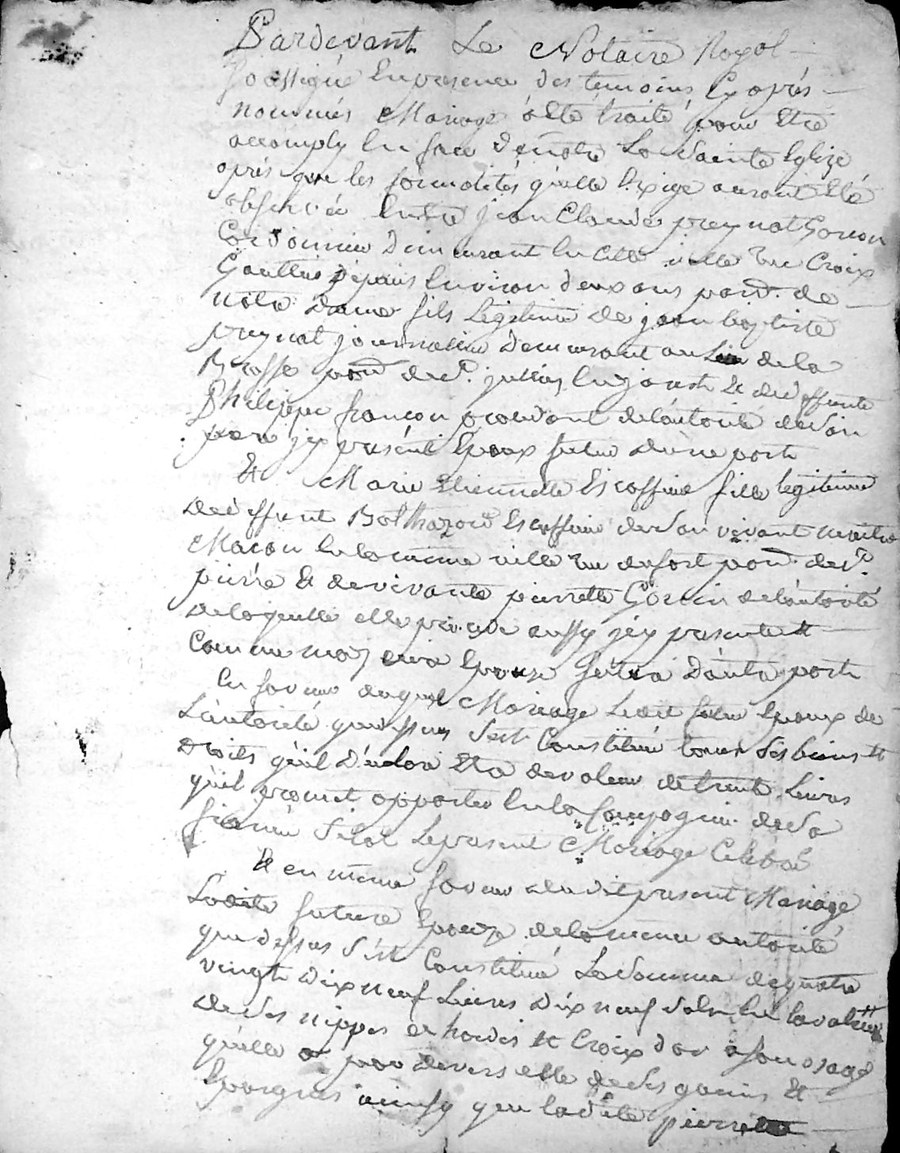 Pardevant Le Notaire Royal
Soussigné En presence des temoins Cy aprés
nommés Mariage a été traité pour Etre
accomply En face de notre Ste Sainte Eglize
aprés que les formalites qu'elle Exige auront Eté
observées Entre jean Claude preynat Garcon
Cordonnier demeurant En cette ville rue Croix
Gauthier depuis Environ deux ans parsse. de
notre Dame fils Legitime de jean baptiste
preynat journalier demeurant au Lieu de la
parsse. de St. jullien En jarest & de deffunte
Philippe francon procedant de l'autorité de son
pere jcy présént Epoux futur d'une part
Et Marie Etiennette Escoffier fille legitime
de deffunt Balthazard Escoffier de son vivant maitre
Macon En la meme ville rue du fort parsse. de St.
pierre Et de vivante pierrette Gorcin de l'autorité
de laquelle elle procede aussy jcy presente Et
Comme mere Epouse future d'autre part
En faveur duquel Mariage Ledit futur Epoux de
L'autorité que dessus s'est Constitué tous ses biens Et
droits qu'il déclare Etre de valeur de trente Livres
qu'il promet apporter En la Compagnie de sa
fiancée Sitot Le present Mariage Celebré
Et en meme faveur dudit present Mariage
Ladite future Epouze de la meme autorité
que dessus s'est Constitué La Somme de quatre
vingt Dix neuf Livres Dix neuf sols En la valeur
de Ses nippes et hardes Et Croix d'or a son usage
qu'elle a par devers elle de Ses gains Et
Epargnes ainsy que ladite pierrette